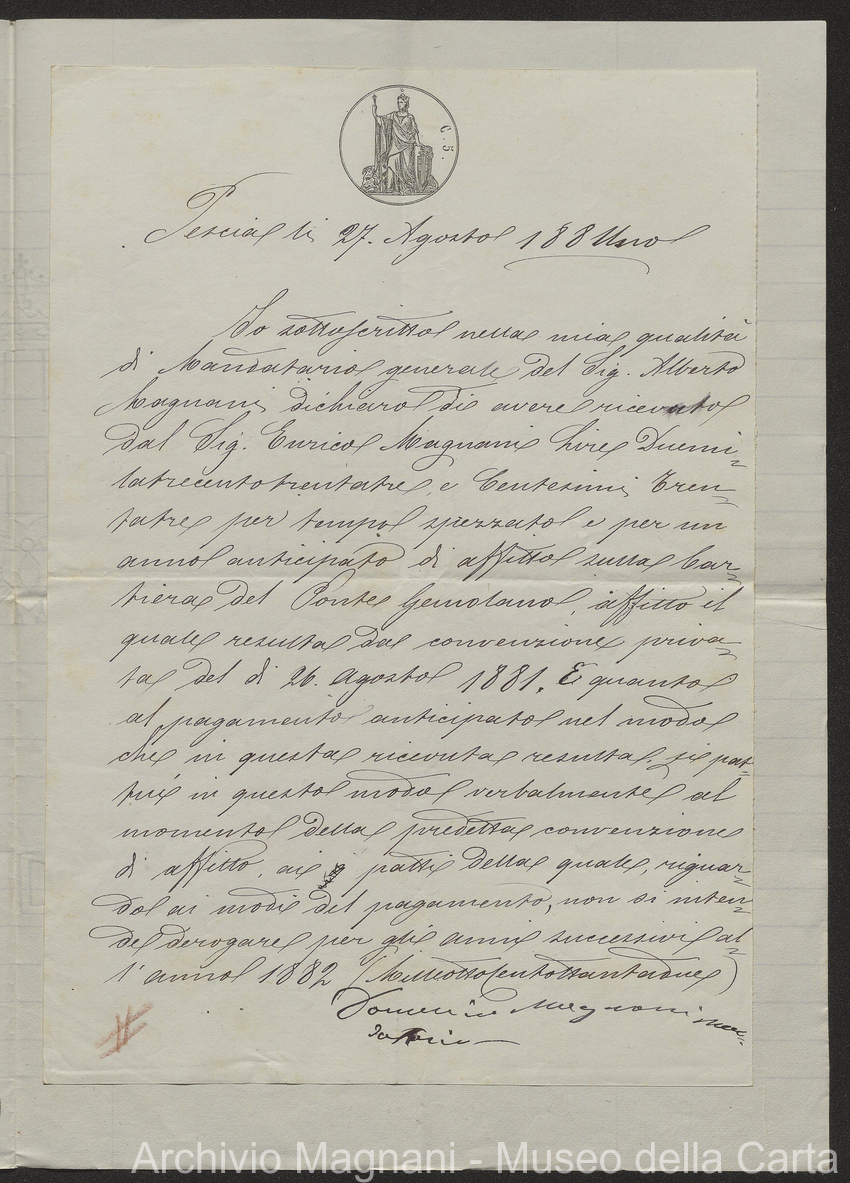 C. 5.
Pescia li 27. Agosto 188Uno
Io sottoscritto nella mia qualità
di Mandatario generale del Sig. Alberto
Magnani dichiaro di avere ricevuto
dal Sig. Enrico Magnani Lire Duemi=
latrecentotrentatre, e Centesimi Tren=
tatre per tempo spezzato e per un
anno anticipato di affitto sulla Car=
tiera del Ponte Gemolano, affitto il
quale resulta da convenzione priva=
ta del dì 26. Agosto 1881. E quanto
al pagamento anticipato nel modo
che in questa ricevuta resulta, si pat=
tuì in questo modo verbalmente al
momento della predetta convenzione
di affitto, ai patti della quale, riguar=
do ai modi del pagamento, non si inten=
de derogare per gli anni successivi al=
l'anno 1882 (Milleottocentottantadue)
Domenico Magnani man=
datario
Archivio Magnani - Museo della Carta